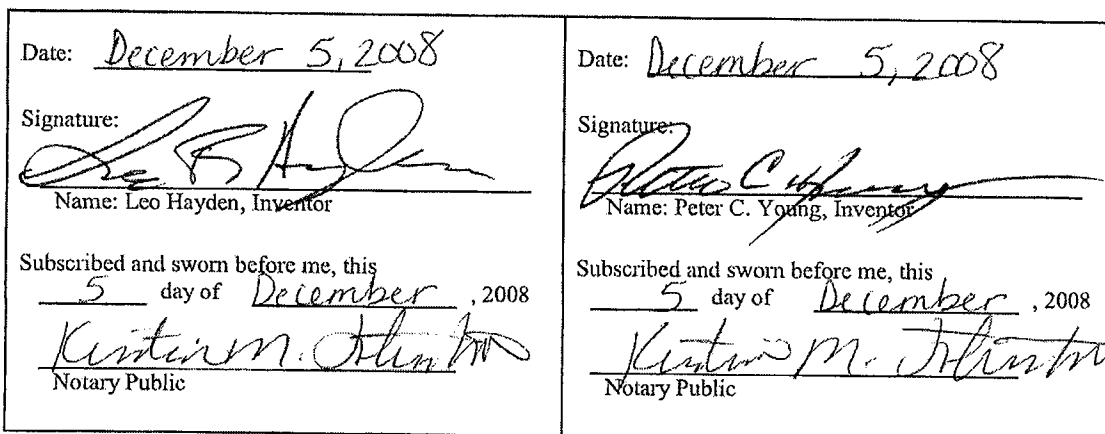 Date: December 5, 2008
Signature:
Name: Leo Hayden, Inventor
Subscribed and sworn before me, this
5 day of December, 2008
M.
Notary Public
Date: December 5, 2008
Signature:
Peter C. Young
Name: Peter C. Young, Inventor
Subscribed and sworn before me, this
5 day of December, 2008
M.
Notary Public